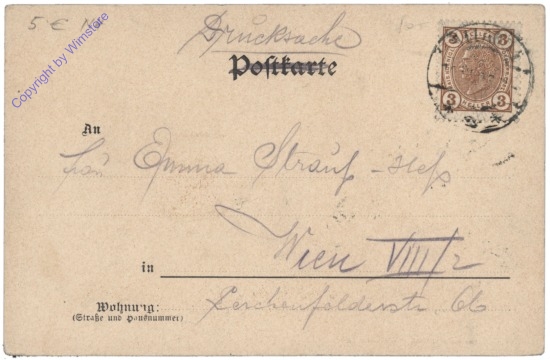 5 €
Copyright by Wimstore
Drucksache
Postkarte
3 3
3 HELLER 3
An
Frau Emma Strauß-Heß
Wien VIII/2
in
Wohnung:
(Straße und Hausnummer)
Lerchenfelderstr 66